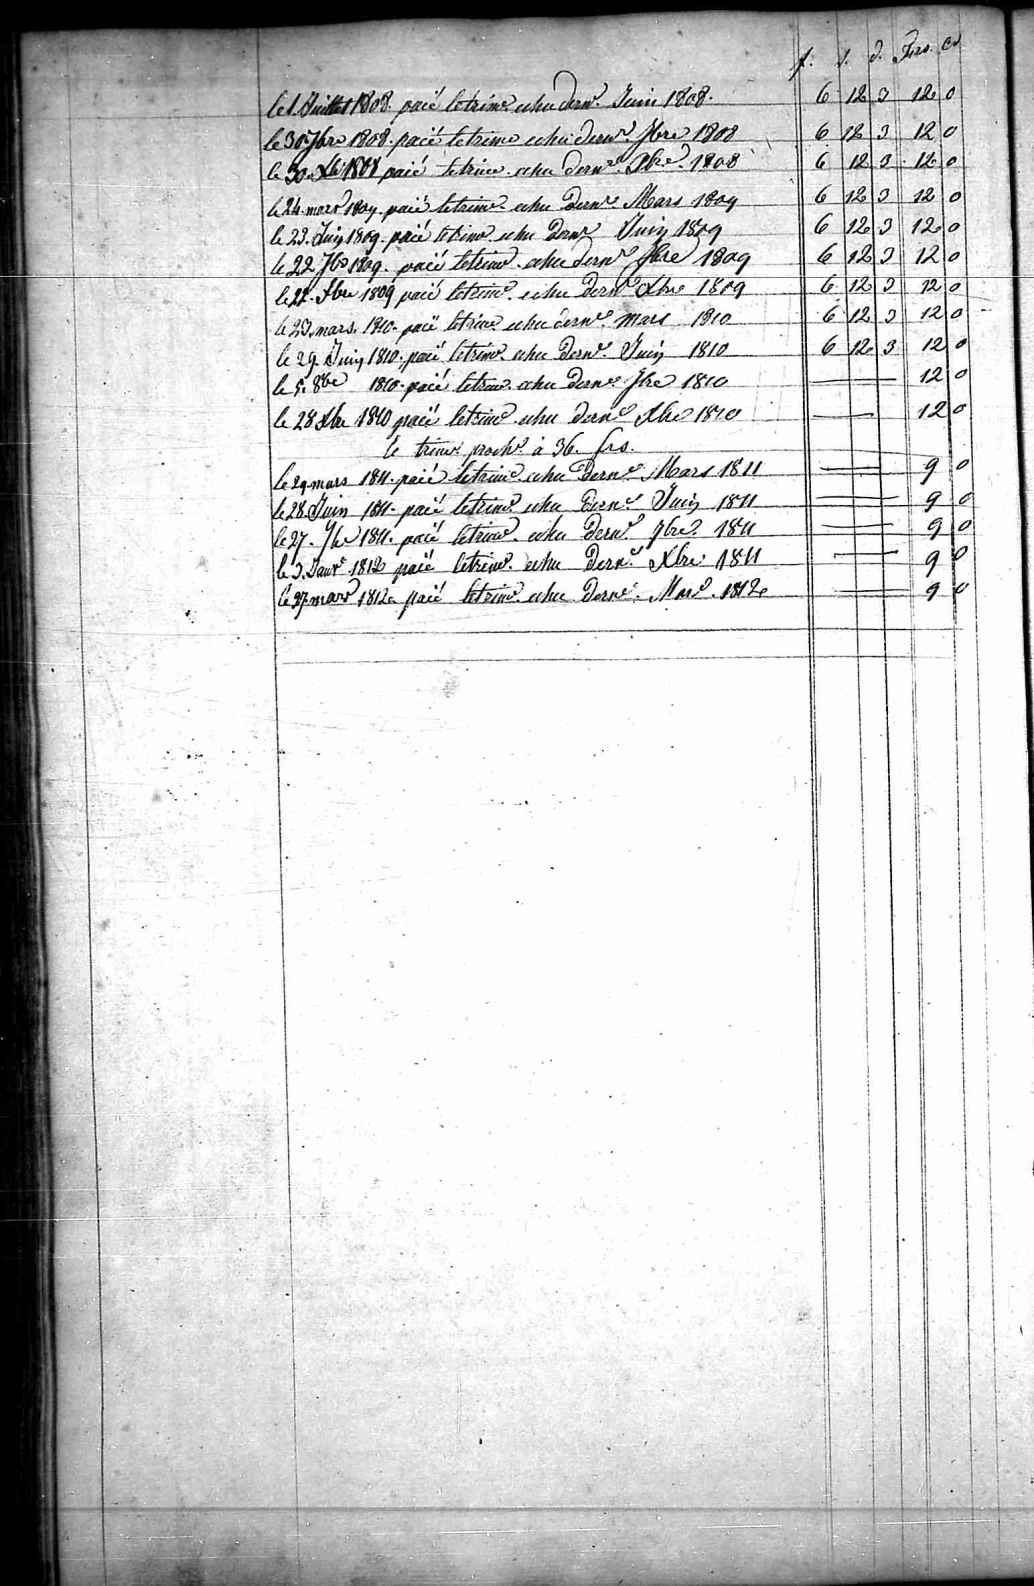 f. s. d. Frs. Cs
le 1. Juillet 1808. paié letrimr. echu dernr. Juin 1808. 6 12 3 12 0
le 30 7bre 1808. paié letrimr echu dernr. 7bre 1808 6 12 3 12 0
le 30. Xbr 1808 paié letrimr. echu dernr. Xbre. 1808 6 12 3 12 0
le 24. mars 1809. paié letrimr. echu dernr. Mars 1809 6 12 3 12 0
le 23. Juin 1809. paié letrimr. echu dernr Juin 1809 6 12 3 12 0
le 22 7br 1809. paié letrimr. echu dernr 7bre 1809 6 12 3 12 0
le 22. Xbre 1809 paié letrimr. echu dernr Xbre 1809 6 12 3 12 0
le 23. mars. 1810. paié letrimr echu dernr. mars 1810 6 12 3 12 0
le 29. Juin 1810. paié letrimr echu dernr. Juin 1810 6 12 3 12 0
le 5. 8bre 1810. paié letrimr. echu dernr 7bre 1810 12 0
le 28 Xbre 1810 paié letrimr. echu dernr Xbre 1810 12 0
le trimr. prochn. à 36. frs.
le 29. mars 1811. paié letrimr. echu dernr. Mars 1811 9 0
le 28. Juin 1811. paié letrimr. echu dernr Juin 1811 9 0
le 27. 7br 1811. paié letrimr. echu dernr. 7bre. 1811 9 0
le 3. Janvr. 1812 paié letrimr. echu dernr. Xbre 1811 9 0
le 27. mars 1812. paié letrimr. echu dernr. Mars. 1812. 9 0